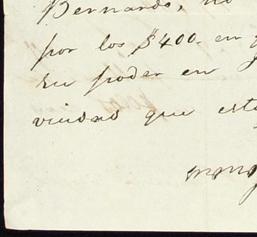 Bernardo, no
por los $400. en
su poder en
vindad que est